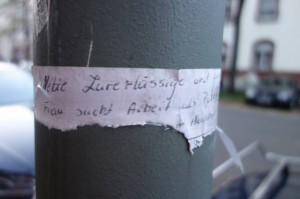 Nette Zuverlässige und
Frau sucht Arbeit als